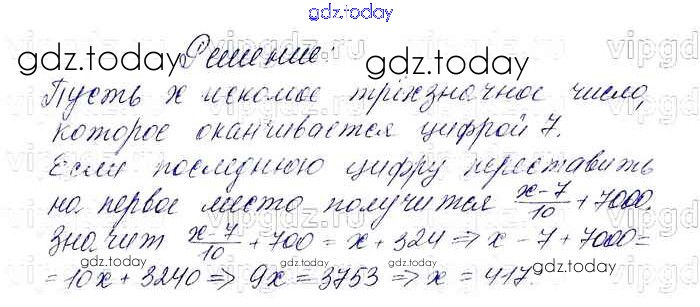 gdz.today
Решение:
gdz.today
gdz.today
Пусть x искомое трёхзначное число,
которое оканчивается цифрой 7.
Если последнюю цифру переставить
на первое место получится \frac{x-7}{10} + 7000.
Значит \frac{x-7}{10} + 700 = x + 324 => x - 7 + 7000 =
= 10x + 3240 => 9x = 3753 => x = 417.
gdz.today
gdz.today